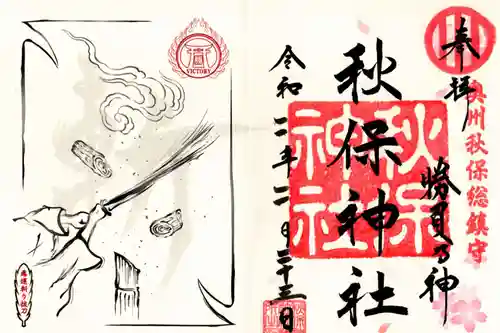 奉拝
奥州秋保総鎮守
勝負乃神
秋保神社
秋保神社
令和二年二月二十三日
VICTORY
悪運斬り抜刀